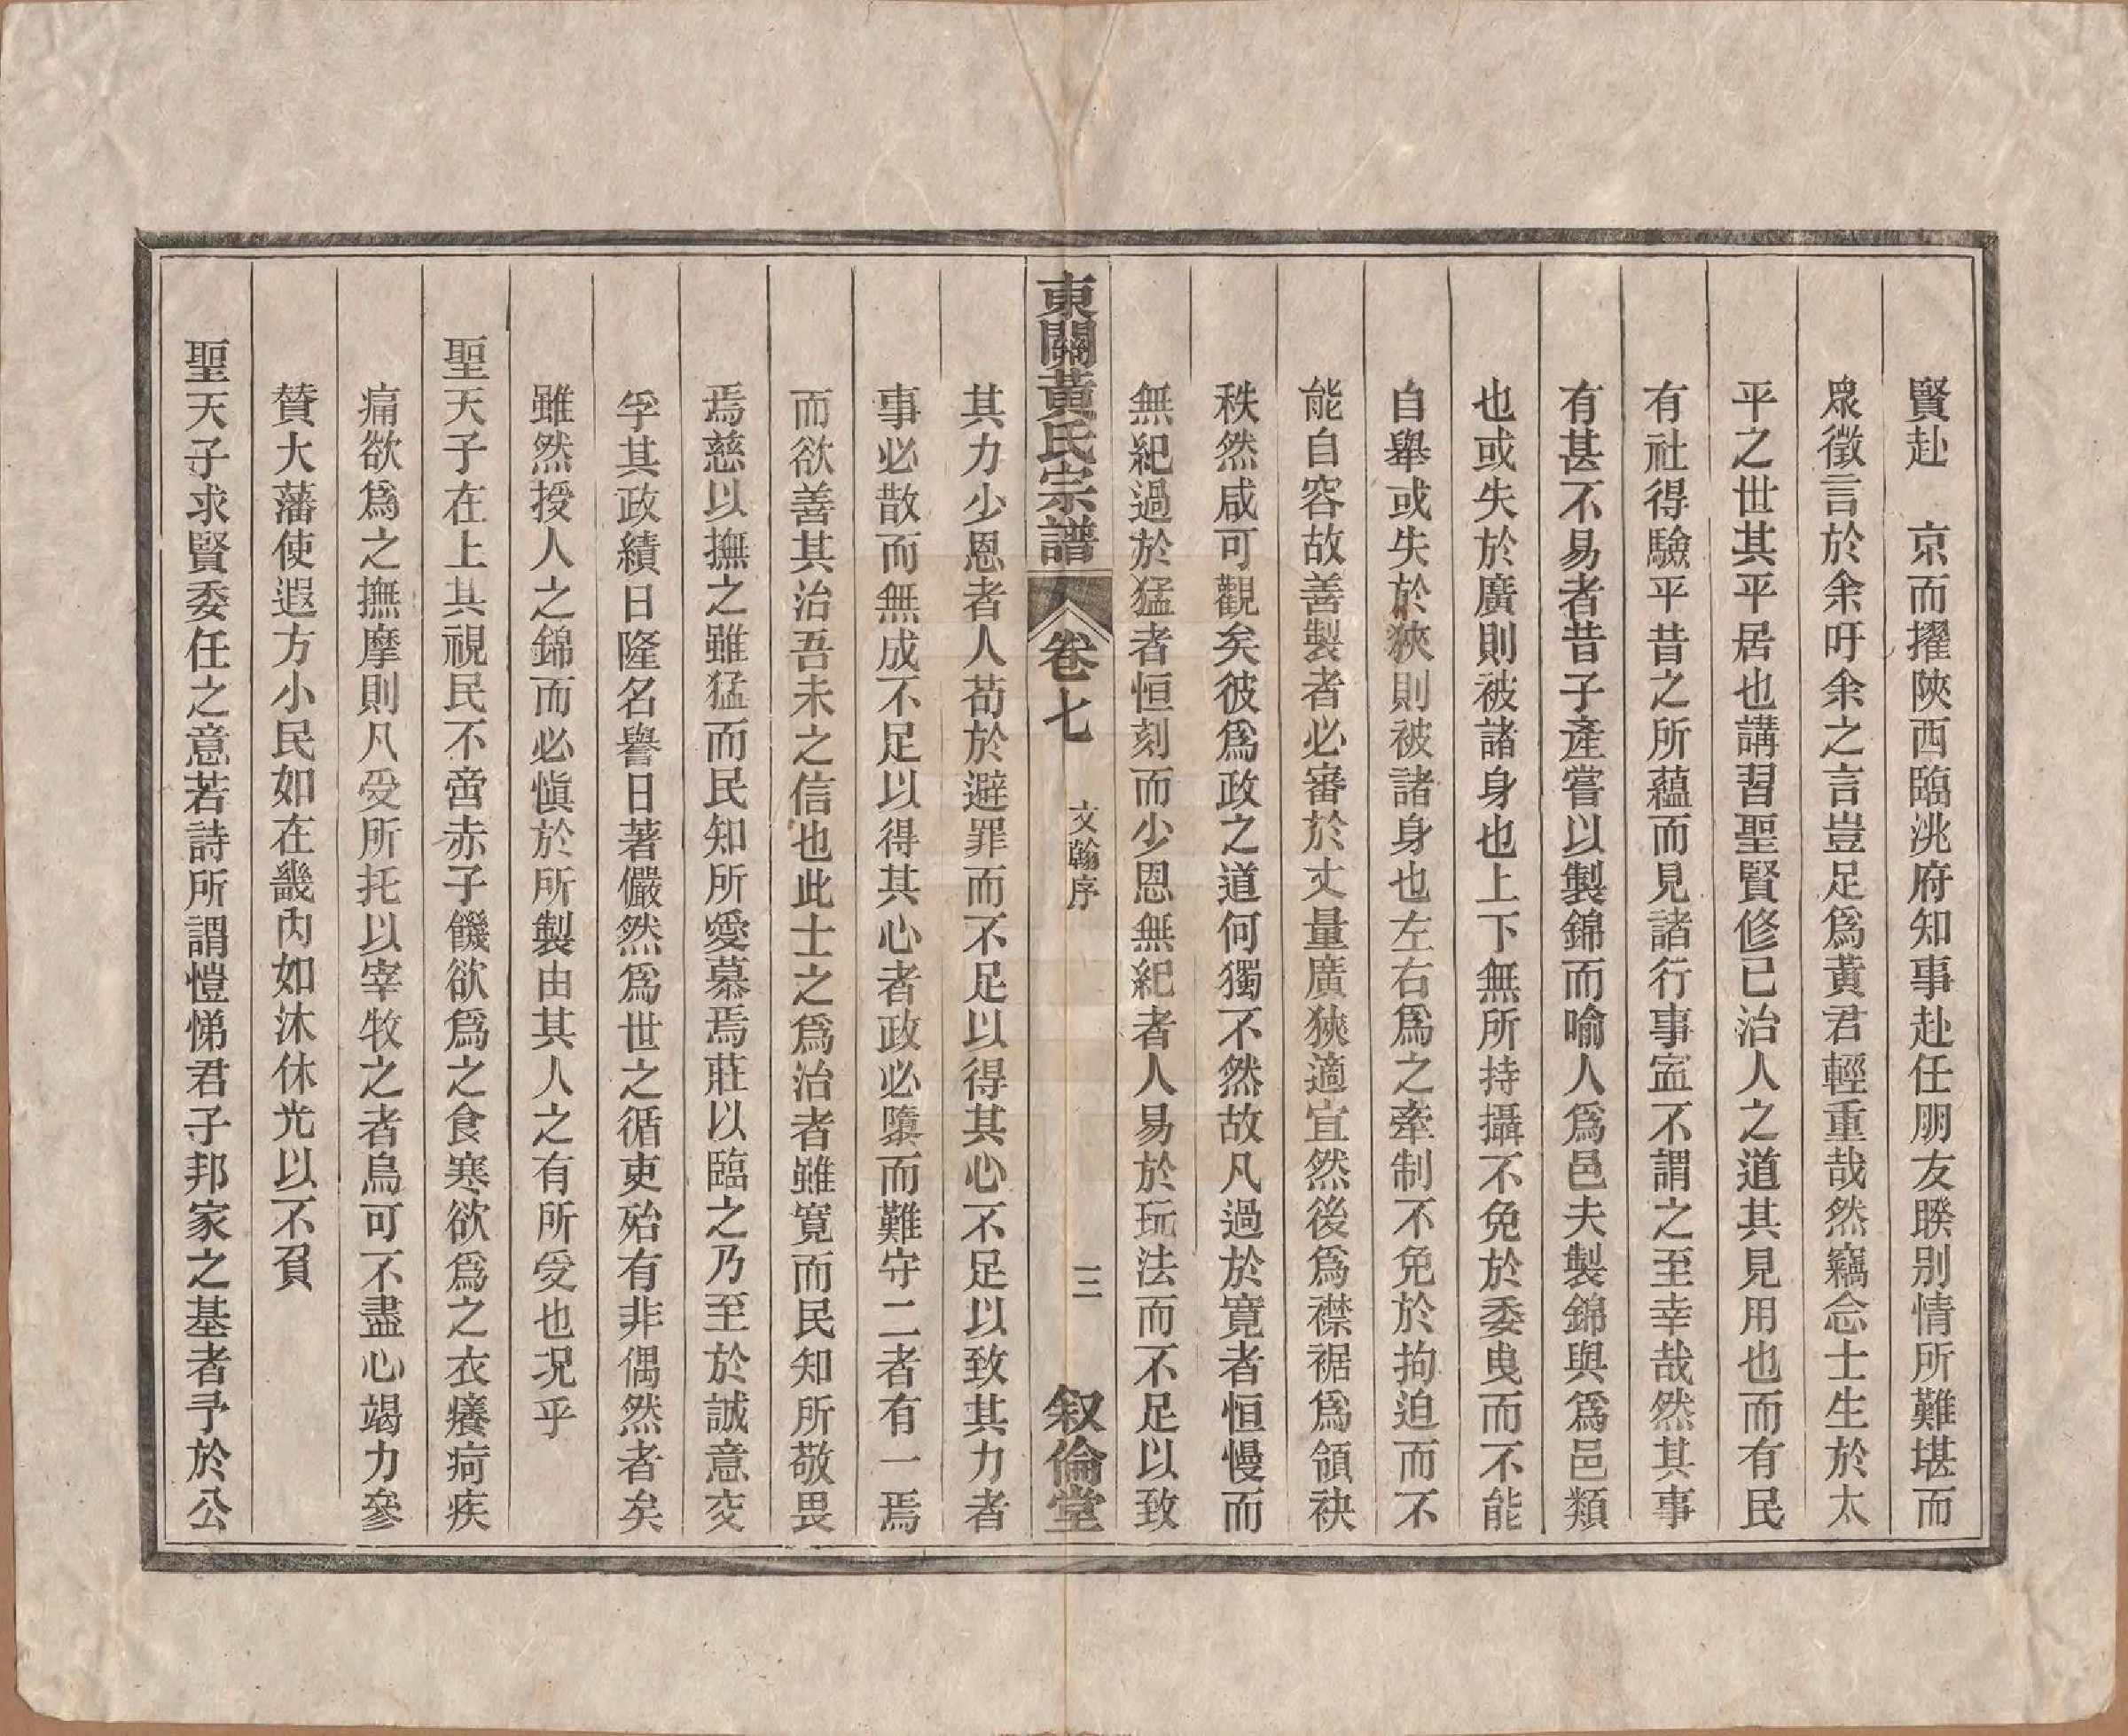 賢赴　京而擢陝西臨洮府知事赴任朋友睽别情所難堪而
衆徵言於余吁余之言豈足爲黃君輕重哉然竊念士生於太
平之世其平居也講習聖賢修己治人之道其見用也而有民
有社得驗平昔之所蘊而見諸行事寍不謂之至幸哉然其事
有甚不易者昔子產嘗以製錦而喻人爲邑夫製錦與爲邑類
也或失於廣則被諸身也上下無所持攝不免於委曳而不能
自舉或失於狹則被諸身也左右爲之牽制不免於拘迫而不
能自容故善製者必審於丈量廣狹適宜然後爲襟裾爲領袂
秩然咸可觀矣彼爲政之道何獨不然故凡過於寬者恒慢而
無紀過於猛者恒刻而少恩無紀者人易於玩法而不足以致
東關黃氏宗譜　卷七　文翰序　三　叙倫堂
其力少恩者人苟於避罪而不足以得其心不足以致其力者
事必散而無成不足以得其心者政必隳而難守二者有一焉
而欲善其治吾未之信也此士之爲治者雖寬而民知所敬畏
焉慈以撫之雖猛而民知所愛慕焉莊以臨之乃至於誠意交
孚其政績日隆名譽日著儼然爲世之循吏殆有非偶然者矣
雖然授人之錦而必愼於所製由其人之有所受也况乎
聖天子在上其視民不啻赤子饑欲爲之食寒欲爲之衣癢疴疾
痛欲爲之撫摩則凡受所托以宰牧之者烏可不盡心竭力參
贊大藩使遐方小民如在畿内如沐休光以不負
聖天子求賢委任之意若詩所謂愷悌君子邦家之基者予於公